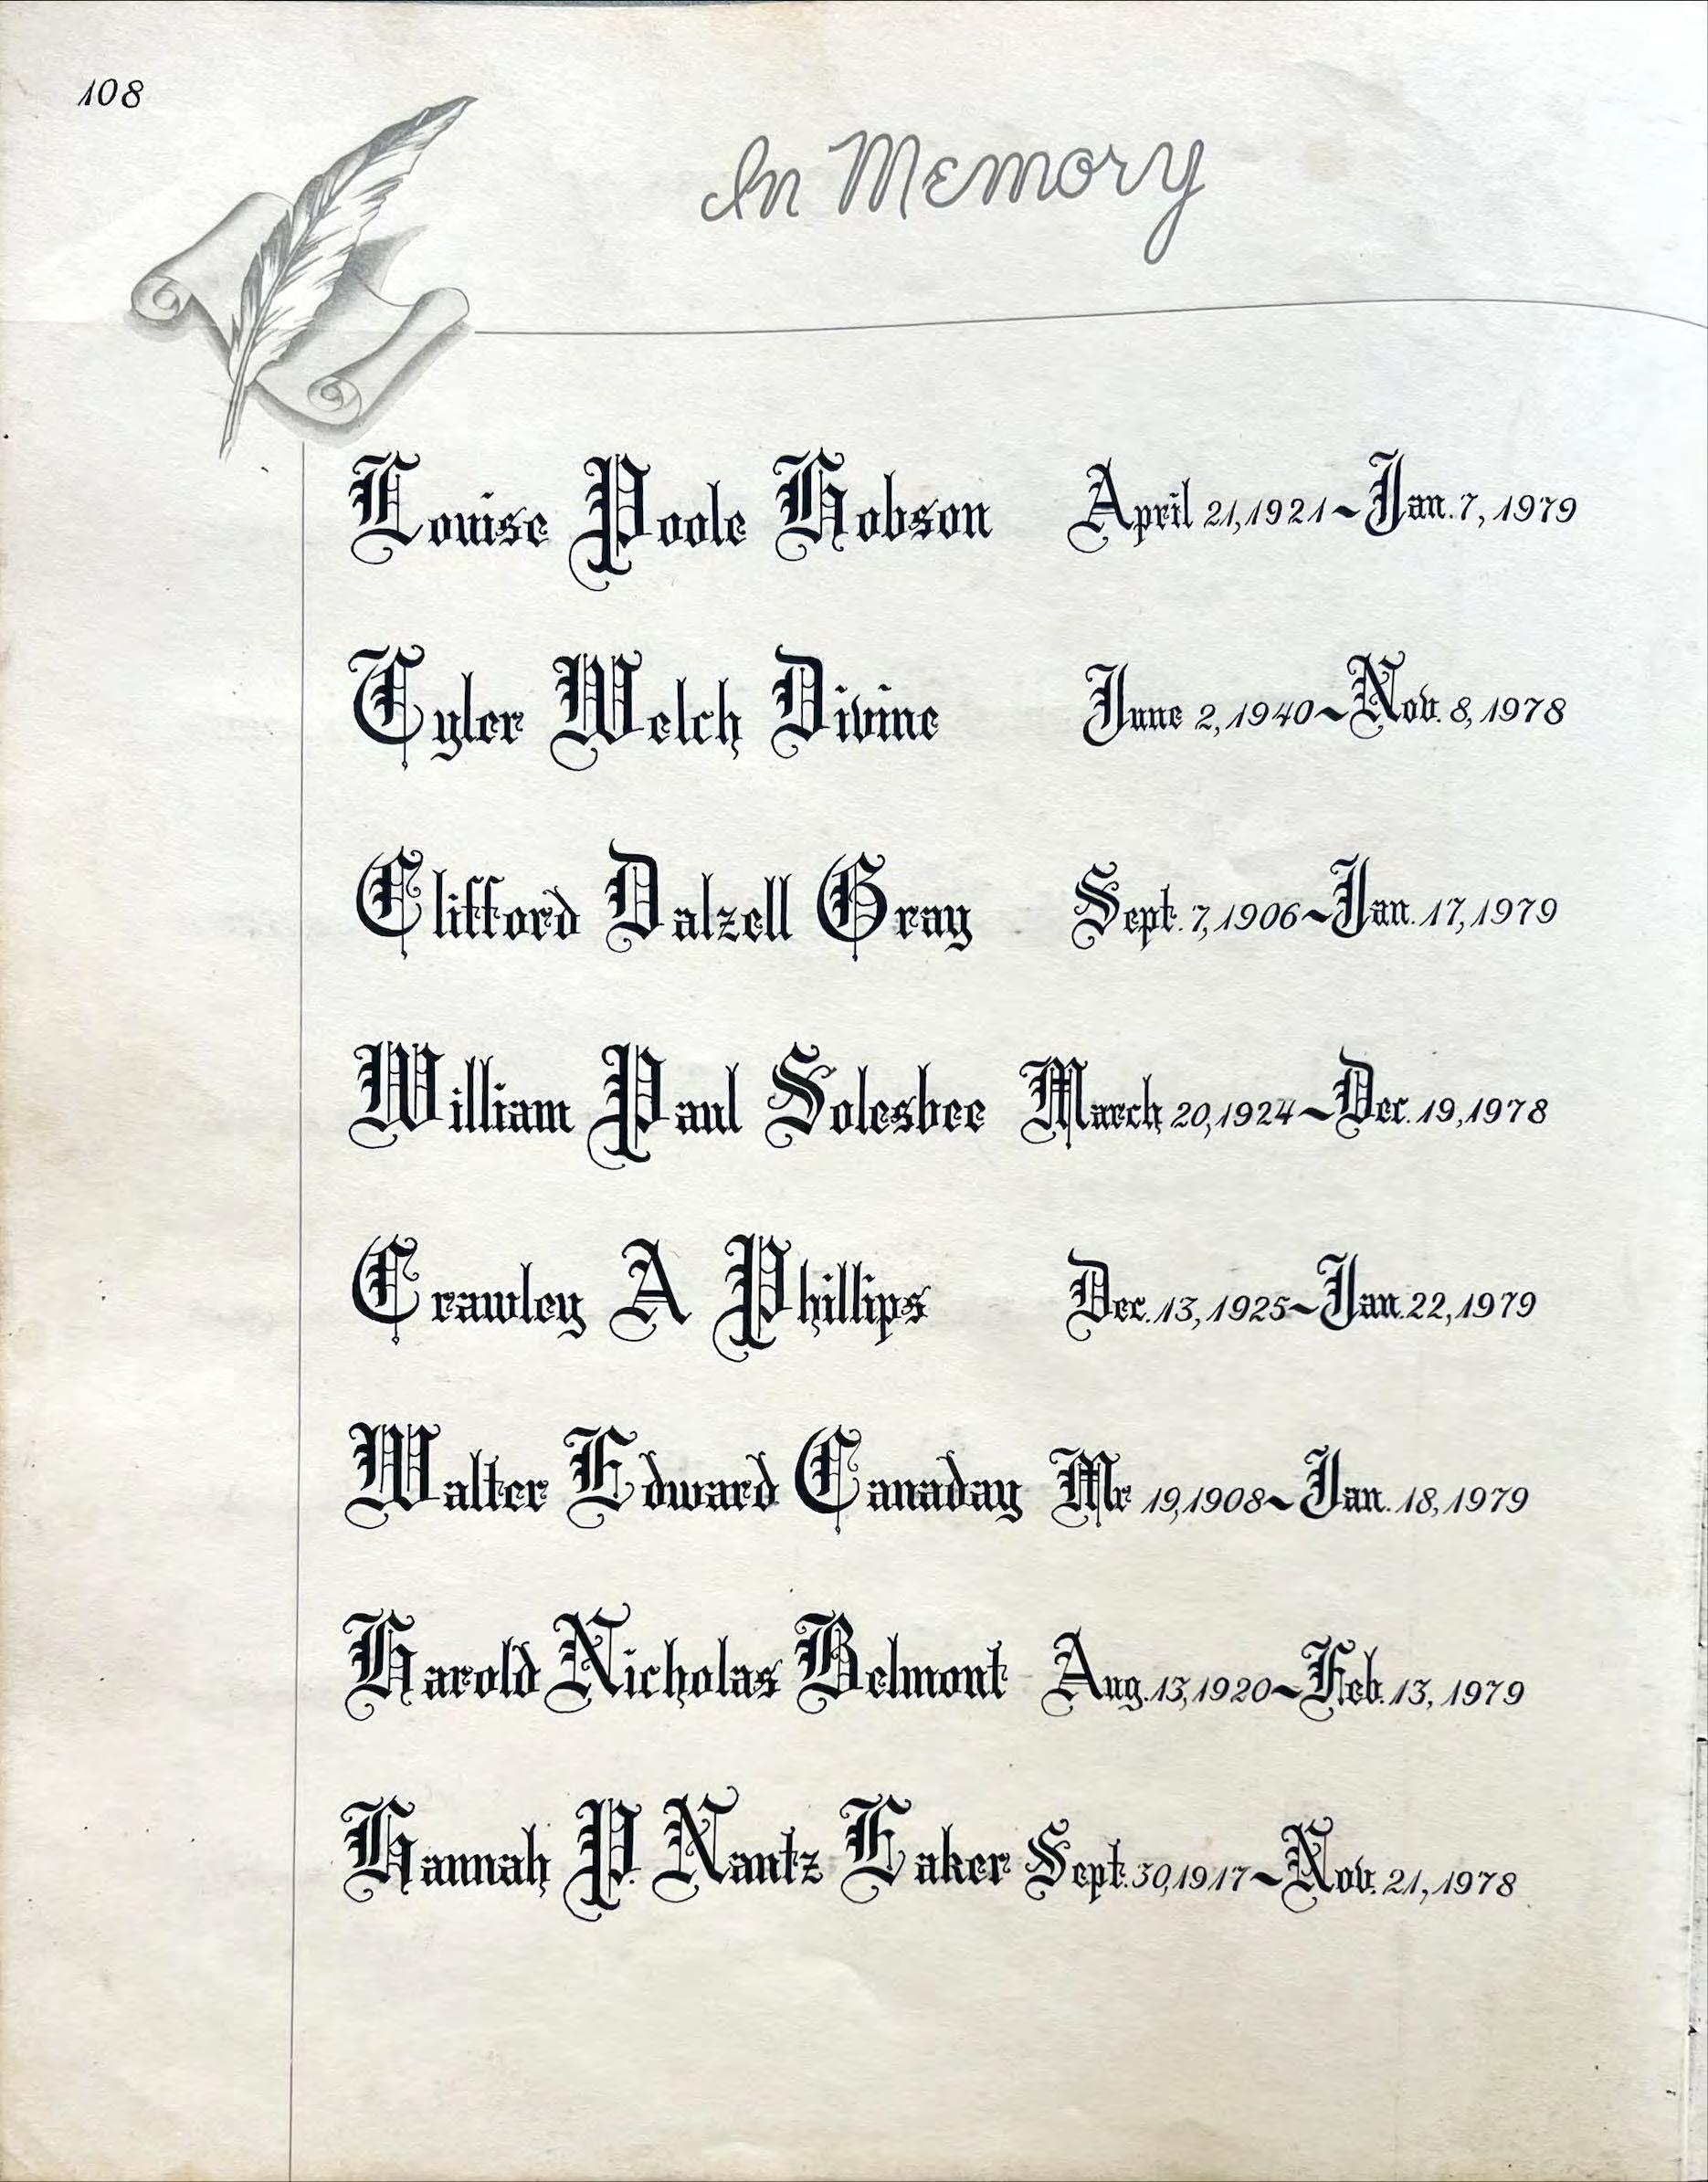 108
In Memory
Louise Poole Hobson April 21, 1921 ~ Jan. 7, 1979
Tyler Welch Divine June 2, 1940 ~ Nov. 8, 1978
Clifford Dalzell Gray Sept. 7, 1906 ~ Jan. 17, 1979
William Paul Solesbee March 20, 1924 ~ Dec. 19, 1978
Crawley A Phillips Dec. 13, 1925 ~ Jan. 22, 1979
Walter Edward Canaday Mr 19, 1908 ~ Jan. 18, 1979
Harold Nicholas Belmont Aug. 13, 1920 ~ Feb. 13, 1979
Hannah P. Nantz Eaker Sept. 30, 1917 ~ Nov. 21, 1978